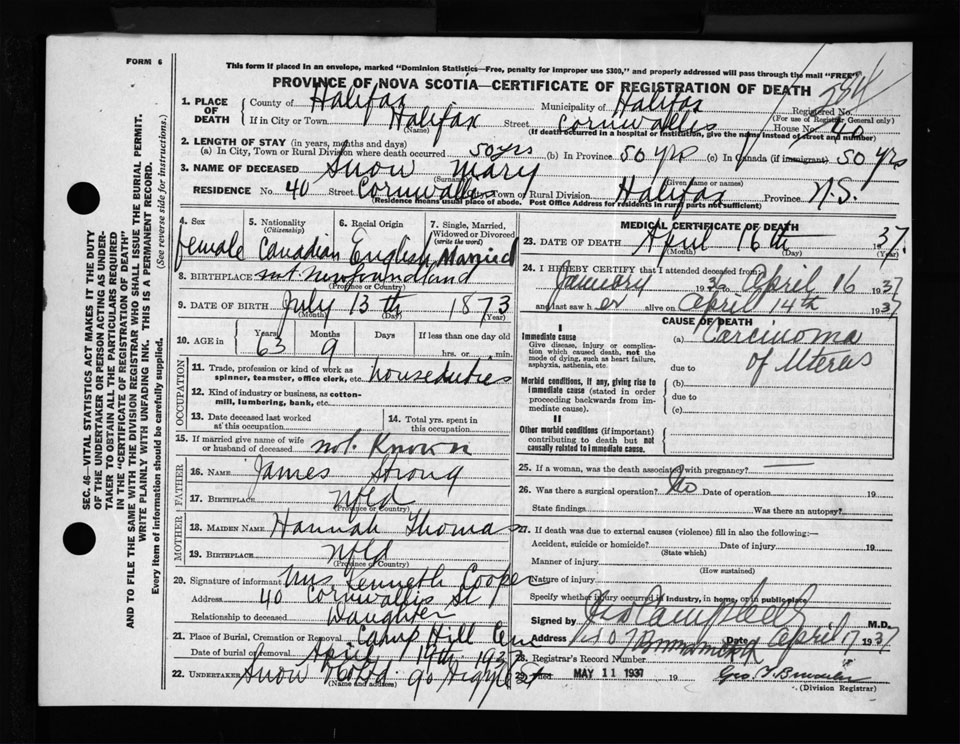 FORM 6
This form if placed in an envelope, marked "Dominion Statistics—Free, penalty for improper use $300," and properly addressed will pass through the mail "FREE"
PROVINCE OF NOVA SCOTIA—CERTIFICATE OF REGISTRATION OF DEATH
1. PLACE OF DEATH
County of Halifax Municipality of Halifax Registered No.
(For use of Registrar General only)
If in City or Town Halifax Street Cornwallis House No. 40
(Name) (If death occurred in a hospital or institution, give the name instead of street and number)
2. LENGTH OF STAY (in years, months and days)
(a) In City, Town or Rural Division where death occurred 50 yrs (b) In Province 50 yrs (c) In Canada (if immigrant) 50 yrs
3. NAME OF DECEASED Snow Mary
(Surname) (Given name or names)
RESIDENCE No. 40 Street Cornwallis City, Town or Rural Division Halifax Province N.S.
(Residence means usual place of abode. Post Office Address for residents in rural parts not sufficient)
4. Sex female
5. Nationality (Citizenship) Canadian
6. Racial Origin English
7. Single, Married, Widowed or Divorced (write the word) Married
8. BIRTHPLACE Newfoundland
(Province or Country)
9. DATE OF BIRTH July 13th 1873
(Month) (Day) (Year)
10. AGE in Years 63 Months 9 Days If less than one day old
hrs. or min.
OCCUPATION
11. Trade, profession or kind of work as spinner, teamster, office clerk, etc. house duties
12. Kind of industry or business, as cotton-mill, lumbering, bank, etc.
13. Date deceased last worked at this occupation
14. Total yrs. spent in this occupation
15. If married give name of wife or husband of deceased not Known
FATHER
16. NAME James Strong
17. BIRTHPLACE Nfld
(Province or Country)
MOTHER
18. MAIDEN NAME Hannah Thomas
19. BIRTHPLACE Nfld
(Province or Country)
20. Signature of informant Mrs Kenneth Cooper
Address 40 Cornwallis St
Relationship to deceased Daughter
21. Place of Burial, Cremation or Removal Camp Hill Cem
Date of burial or removal April 19th 1937
22. UNDERTAKER Snow & Co Ltd. 90 Argyle St
(Name and address)
MEDICAL CERTIFICATE OF DEATH
23. DATE OF DEATH April 16th 1937
(Month) (Day) (Year)
24. I HEREBY CERTIFY that I attended deceased from:
January 1936 to April 16 1937
and last saw her alive on April 14th 1937
CAUSE OF DEATH
I
Immediate cause
Give disease, injury or complication which caused death, not the mode of dying, such as heart failure, asphyxia, asthenia, etc.
(a) Carcinoma of Uterus
due to
Morbid conditions, if any, giving rise to immediate cause (stated in order proceeding backwards from immediate cause).
(b)
due to
(c)
II
Other morbid conditions (if important) contributing to death but not causally related to immediate cause.
25. If a woman, was the death associated with pregnancy? —
26. Was there a surgical operation? No Date of operation 19
State findings Was there an autopsy?
27. If death was due to external causes (violence) fill in also the following:—
Accident, suicide or homicide? Date of injury 19
(State which)
Manner of injury
(How sustained)
Nature of injury
Specify whether injury occurred in industry, in home, or in public place
Signed by Geo Campbell M.D.
Address Date April 17 1937
28. Registrar's Record Number
29. MAY 11 1937 19
(Division Registrar)
SEC. 46—VITAL STATISTICS ACT MAKES IT THE DUTY
OF THE UNDERTAKER OR PERSON ACTING AS UNDER-
TAKER TO OBTAIN ALL THE PARTICULARS REQUIRED
IN THE "CERTIFICATE OF REGISTRATION OF DEATH"
AND TO FILE THE SAME WITH THE DIVISION REGISTRAR WHO SHALL ISSUE THE BURIAL PERMIT.
WRITE PLAINLY WITH UNFADING INK. THIS IS A PERMANENT RECORD.
Every item of information should be carefully supplied. (See reverse side for instructions.)